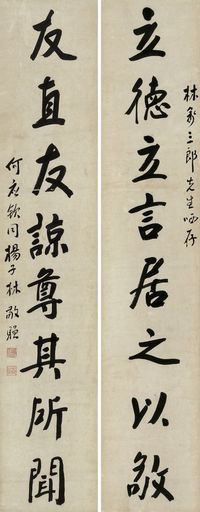 林三郎先生哂存
立德立言居之以敬
友直友諒尊其所聞
何應欽同楊子林敬贈